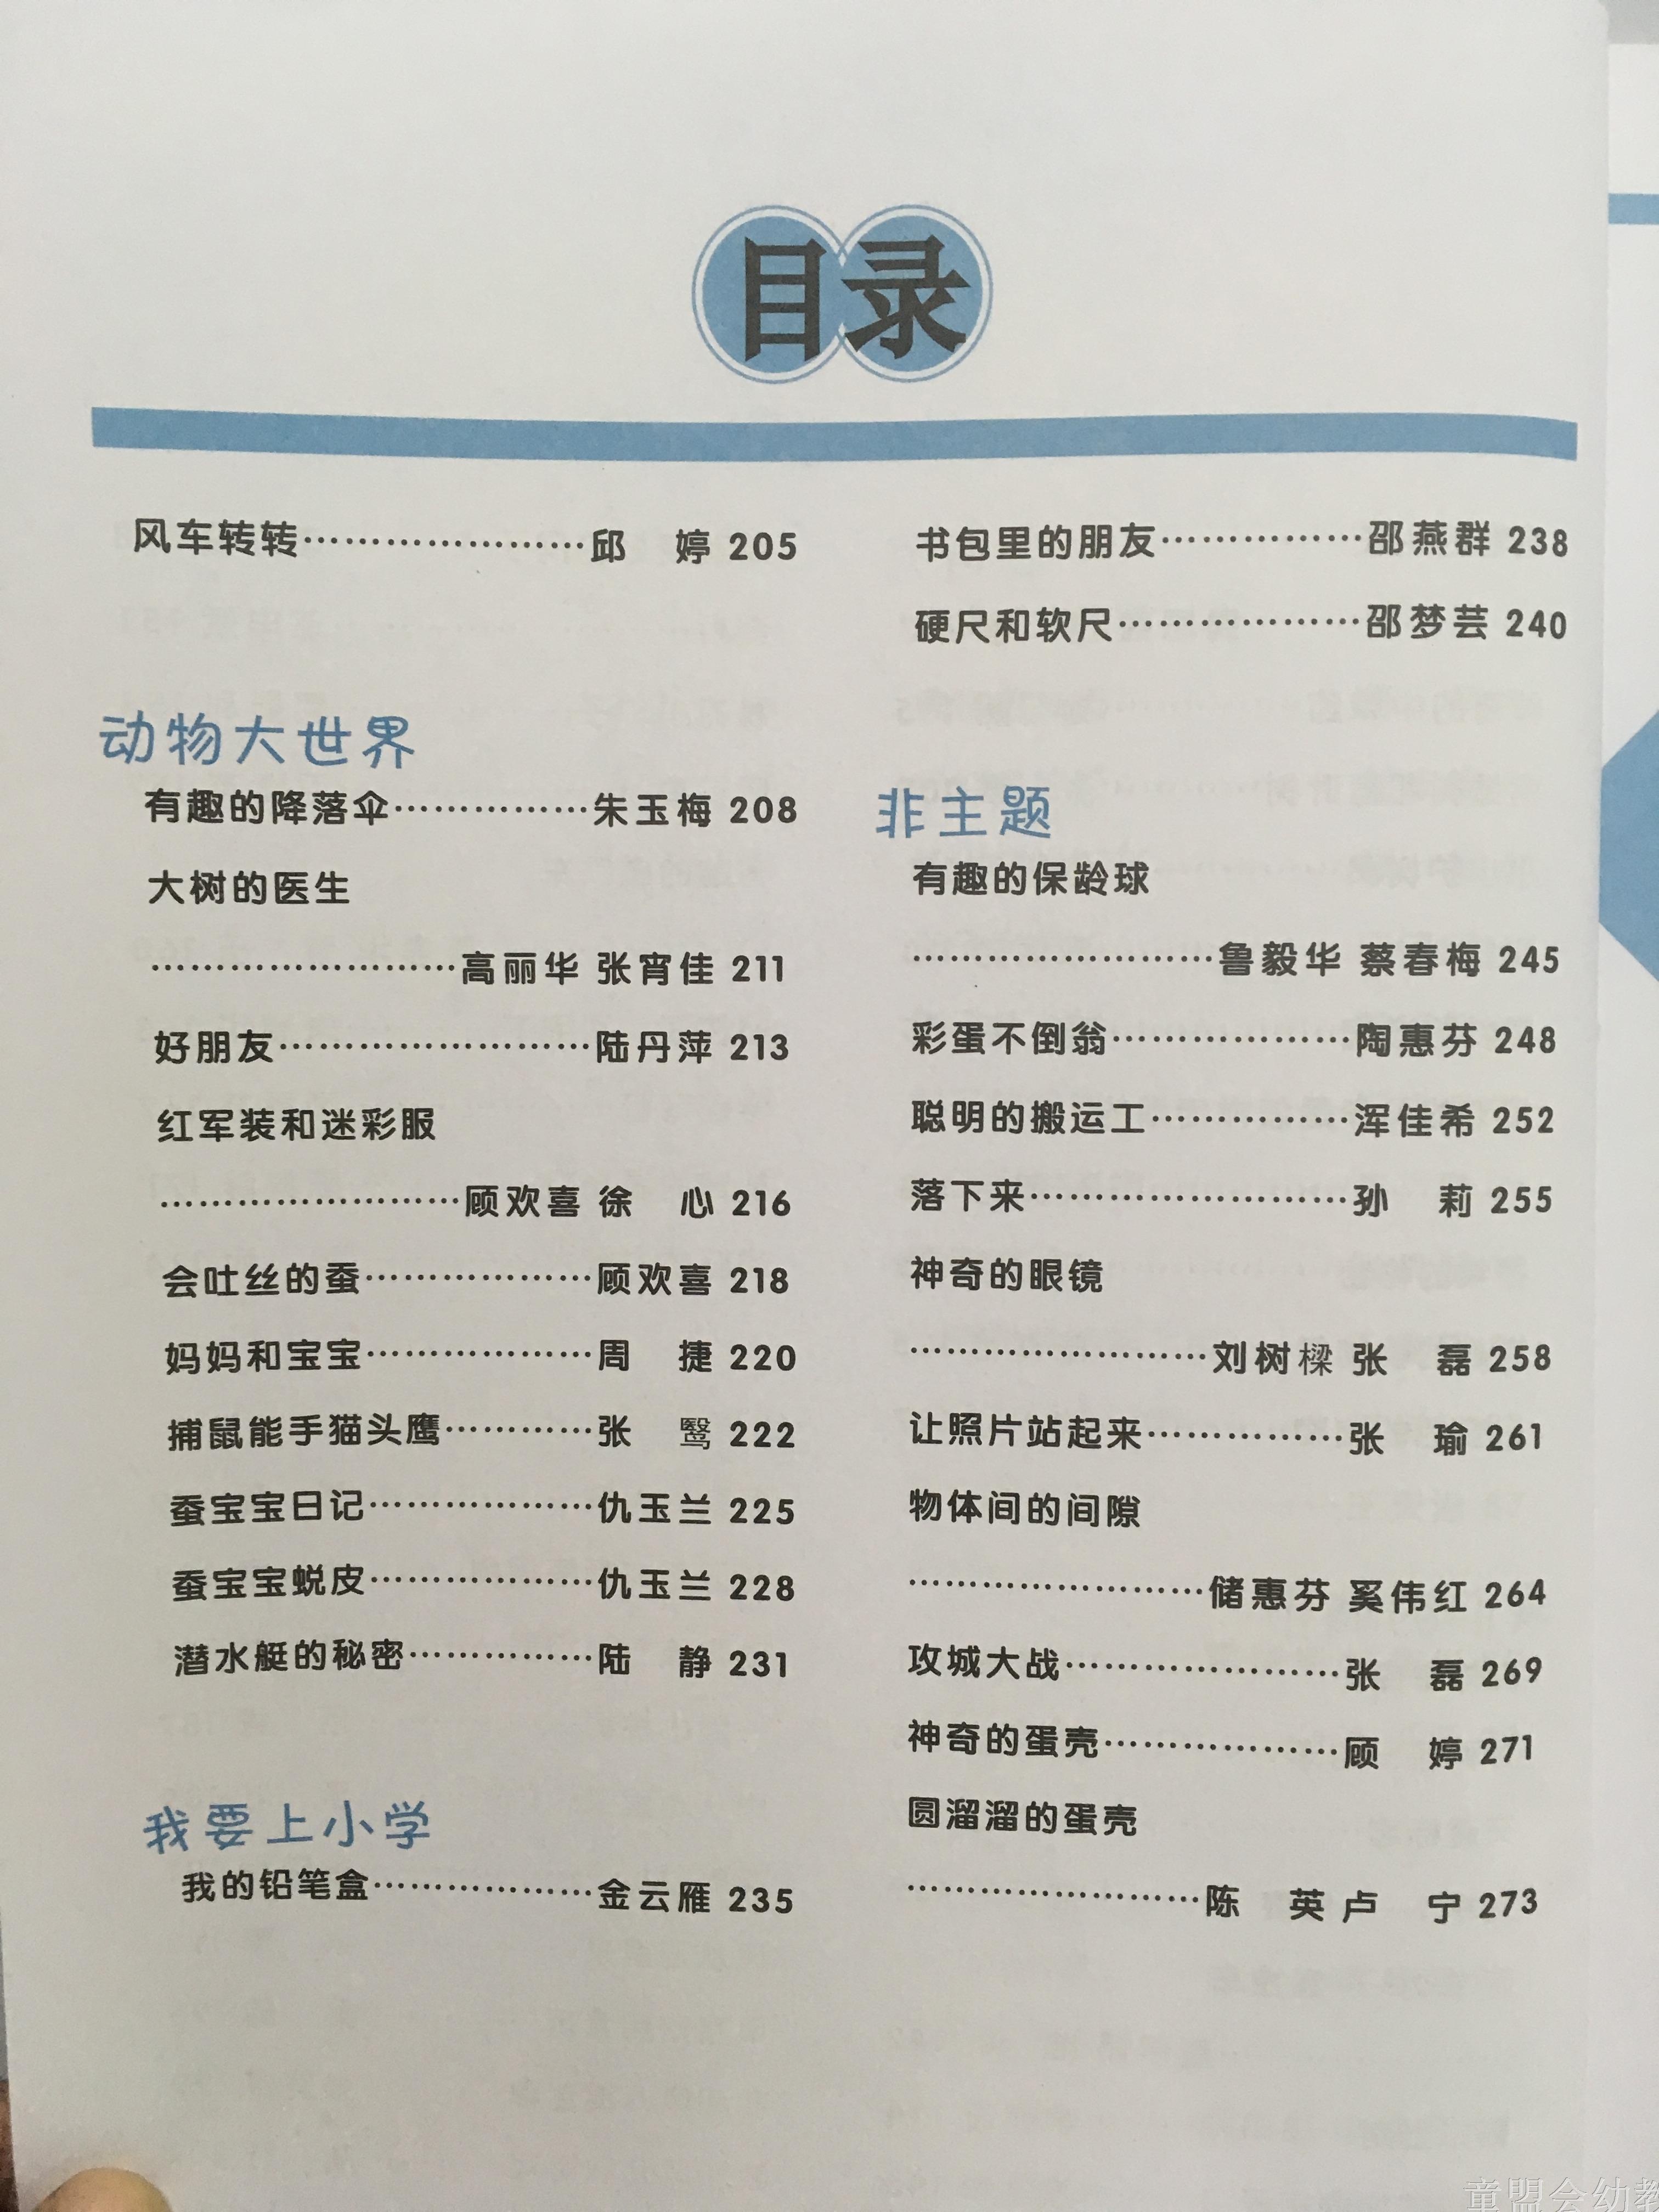 目录
风车转转……………………邱　婷 205
动物大世界
有趣的降落伞……………朱玉梅 208
大树的医生
……………………高丽华 张宵佳 211
好朋友……………………陆丹萍 213
红军装和迷彩服
……………………顾欢喜 徐　心 216
会吐丝的蚕………………顾欢喜 218
妈妈和宝宝………………周　捷 220
捕鼠能手猫头鹰…………张　鹥 222
蚕宝宝日记………………仇玉兰 225
蚕宝宝蜕皮………………仇玉兰 228
潜水艇的秘密……………陆　静 231
我要上小学
我的铅笔盒………………金云雁 235
书包里的朋友……………邵燕群 238
硬尺和软尺………………邵梦芸 240
非主题
有趣的保龄球
……………………鲁毅华 蔡春梅 245
彩蛋不倒翁………………陶惠芬 248
聪明的搬运工……………浑佳希 252
落下来……………………孙　莉 255
神奇的眼镜
……………………刘树樑 张　磊 258
让照片站起来……………张　瑜 261
物体间的间隙
……………………储惠芬 奚伟红 264
攻城大战…………………张　磊 269
神奇的蛋壳………………顾　婷 271
圆溜溜的蛋壳
……………………陈　英 卢　宁 273
童盟会幼教